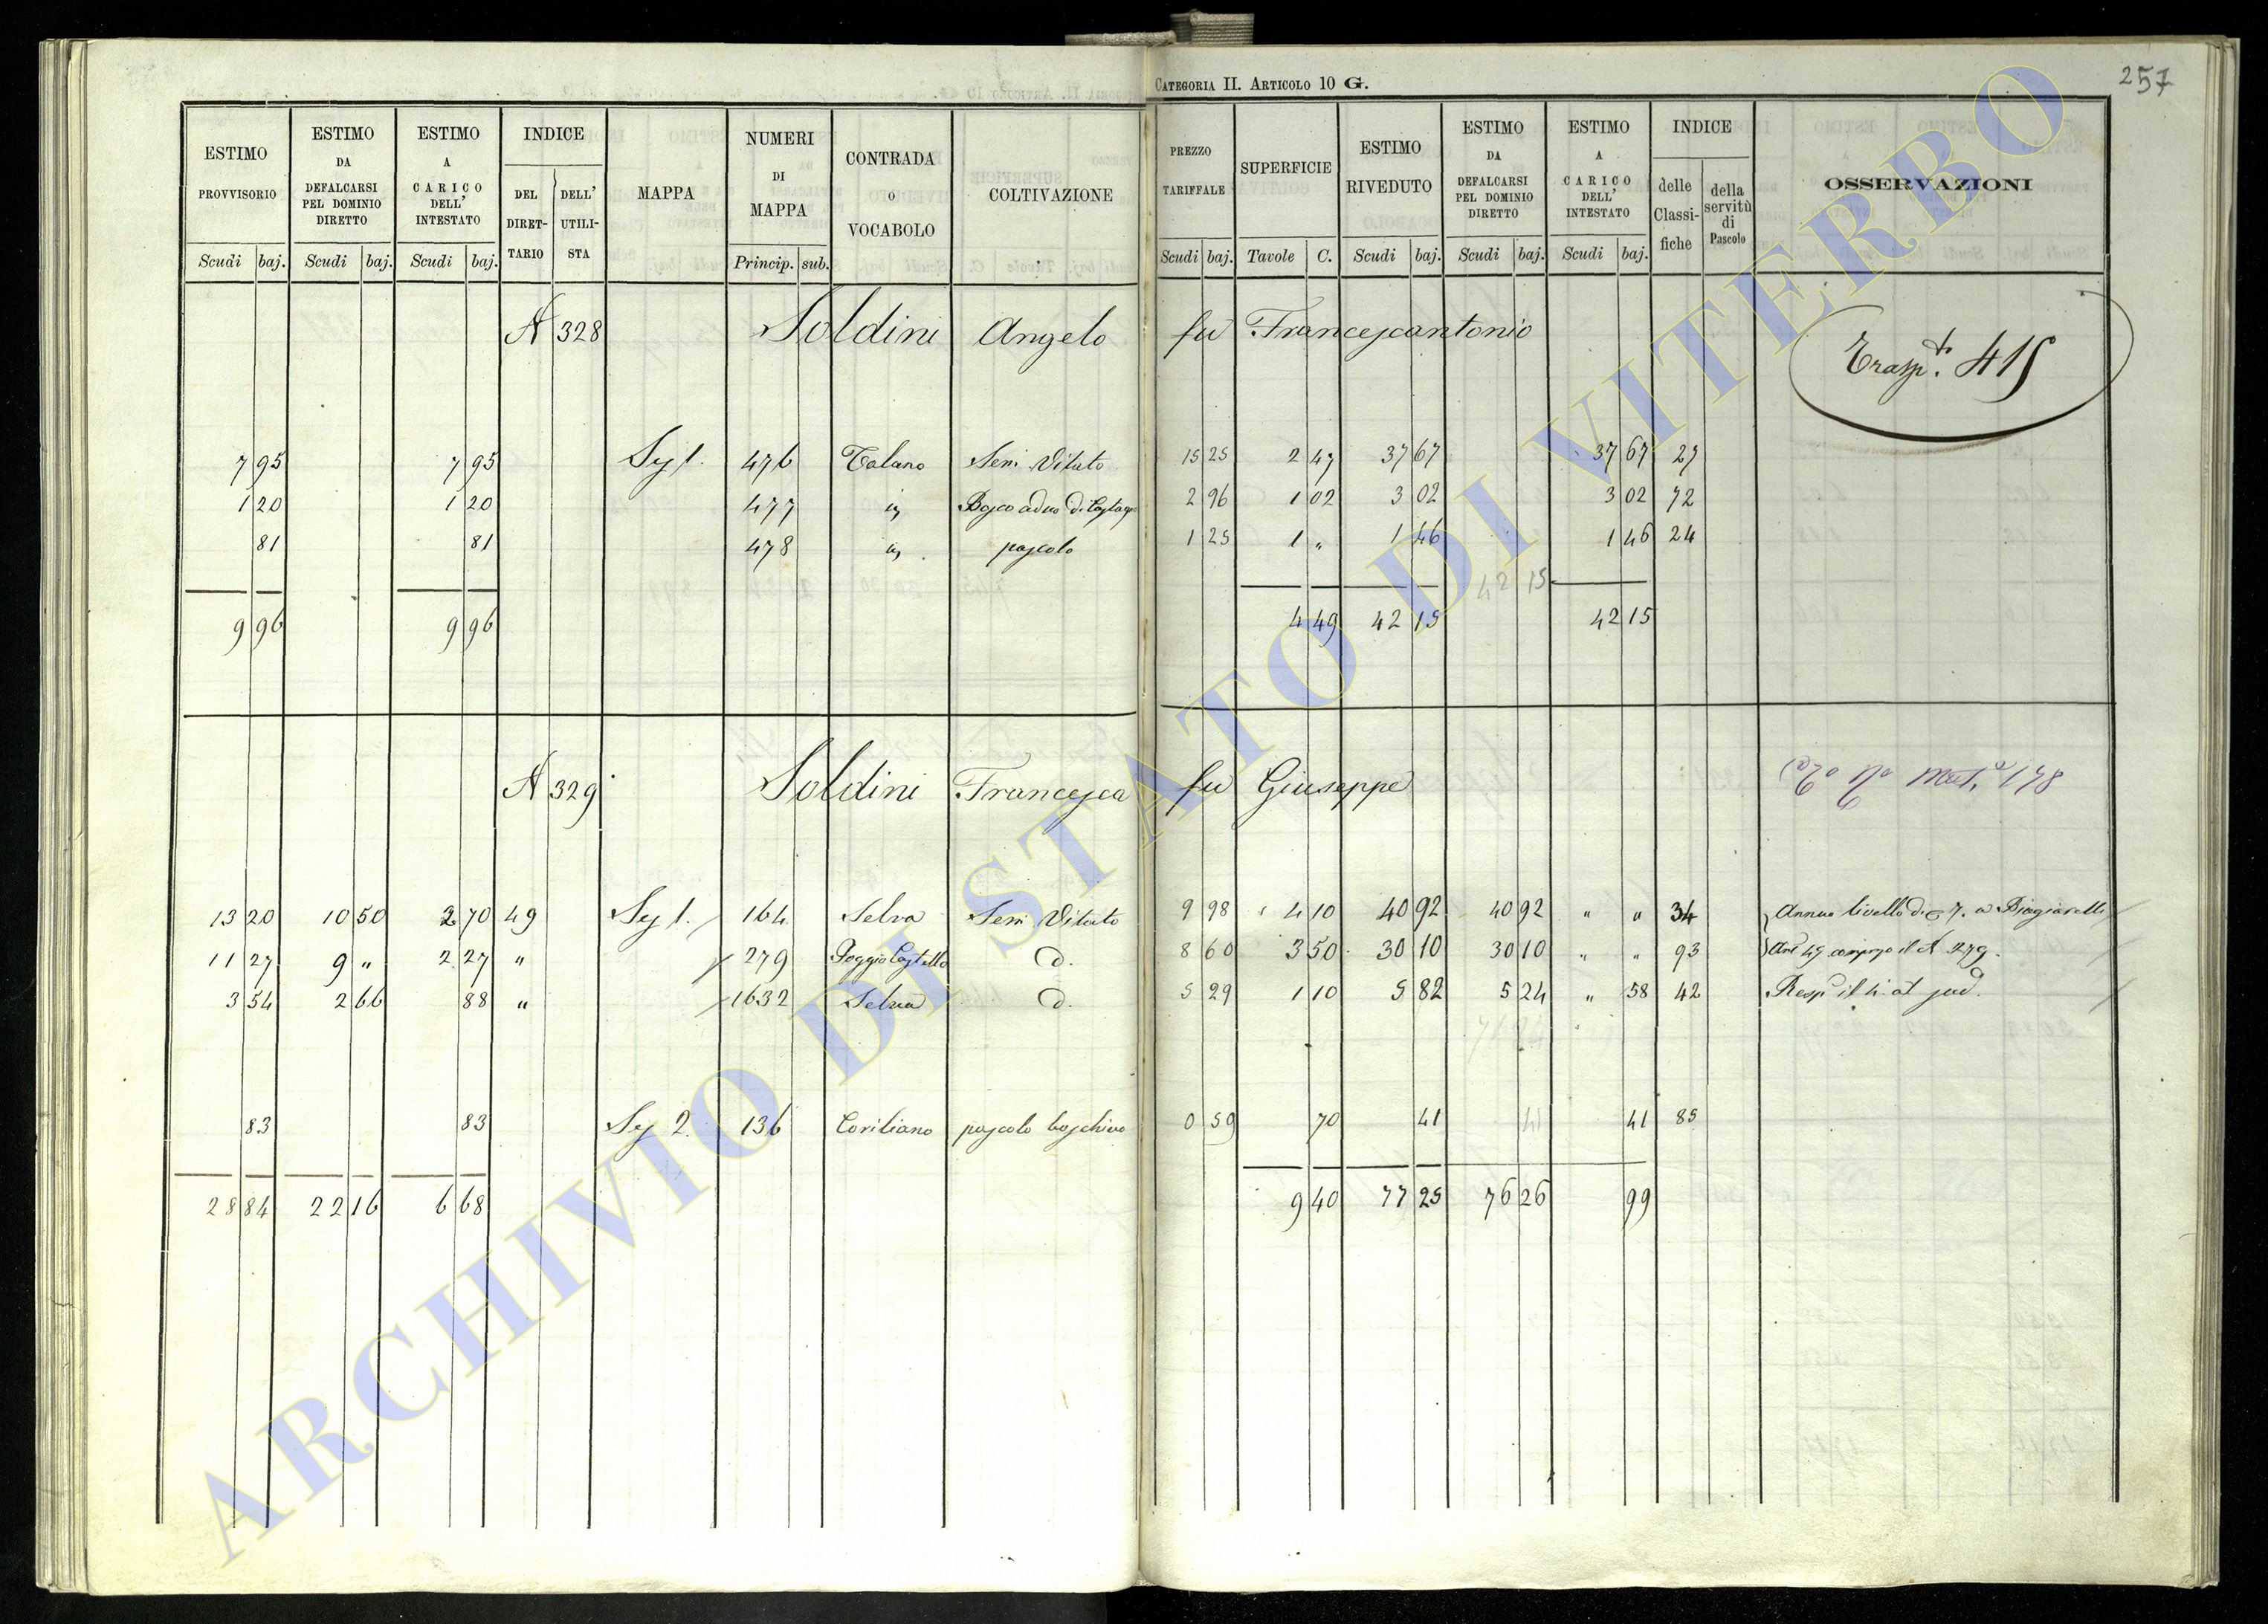 CATEGORIA II. ARTICOLO 10 G.
257
ESTIMO PROVVISORIO Scudi baj. ESTIMO DA DEFALCARSI PEL DOMINIO DIRETTO Scudi baj. ESTIMO A CARICO DELL' INTESTATO Scudi baj. INDICE DEL DIRETTARIO DELL' UTILISTA MAPPA NUMERI DI MAPPA Princip. sub. CONTRADA O VOCABOLO COLTIVAZIONE PREZZO TARIFFALE Scudi baj. SUPERFICIE Tavole C. ESTIMO RIVEDUTO Scudi baj. ESTIMO DA DEFALCARSI PEL DOMINIO DIRETTO Scudi baj. ESTIMO A CARICO DELL' INTESTATO Scudi baj. INDICE delle Classifiche della servitù di Pascolo OSSERVAZIONI
N 328 Soldini Angelo fu Francescantonio
Trasp.to 415
7 95 7 95 Sez 1. 476 Talano Sem Vitato 15 25 2 47 37 67 37 67 27
1 20 1 20 477 Bosco ceduo di 2 96 1 02 3 02 3 02 72
81 81 478 pascolo 1 25 1 " 1 46 1 46 24
42 15
9 96 9 96 4 49 42 15 42 15
N 329 Soldini Francesca fu Giuseppe
178
13 20 10 50 2 70 49 Sez 1. 164 Selva Sem Vitato 9 98 4 10 40 92 40 92 " " 34 Annuo livello di 7. a Biagiarelli
11 27 9 " 2 27 " 279 Poggio Castello d. 8 60 3 50 30 10 30 10 " " 93 Art 49 compreso il N 279.
3 54 2 66 88 " 1632 Selva d. 5 29 1 10 5 82 5 24 " 58 42 Resp
83 83 Sez 2. 136 Coriliano pascolo boschivo 0 59 70 41 41 41 85
28 84 22 16 6 68 9 40 77 25 76 26 99
ARCHIVIO DI STATO DI VITERBO